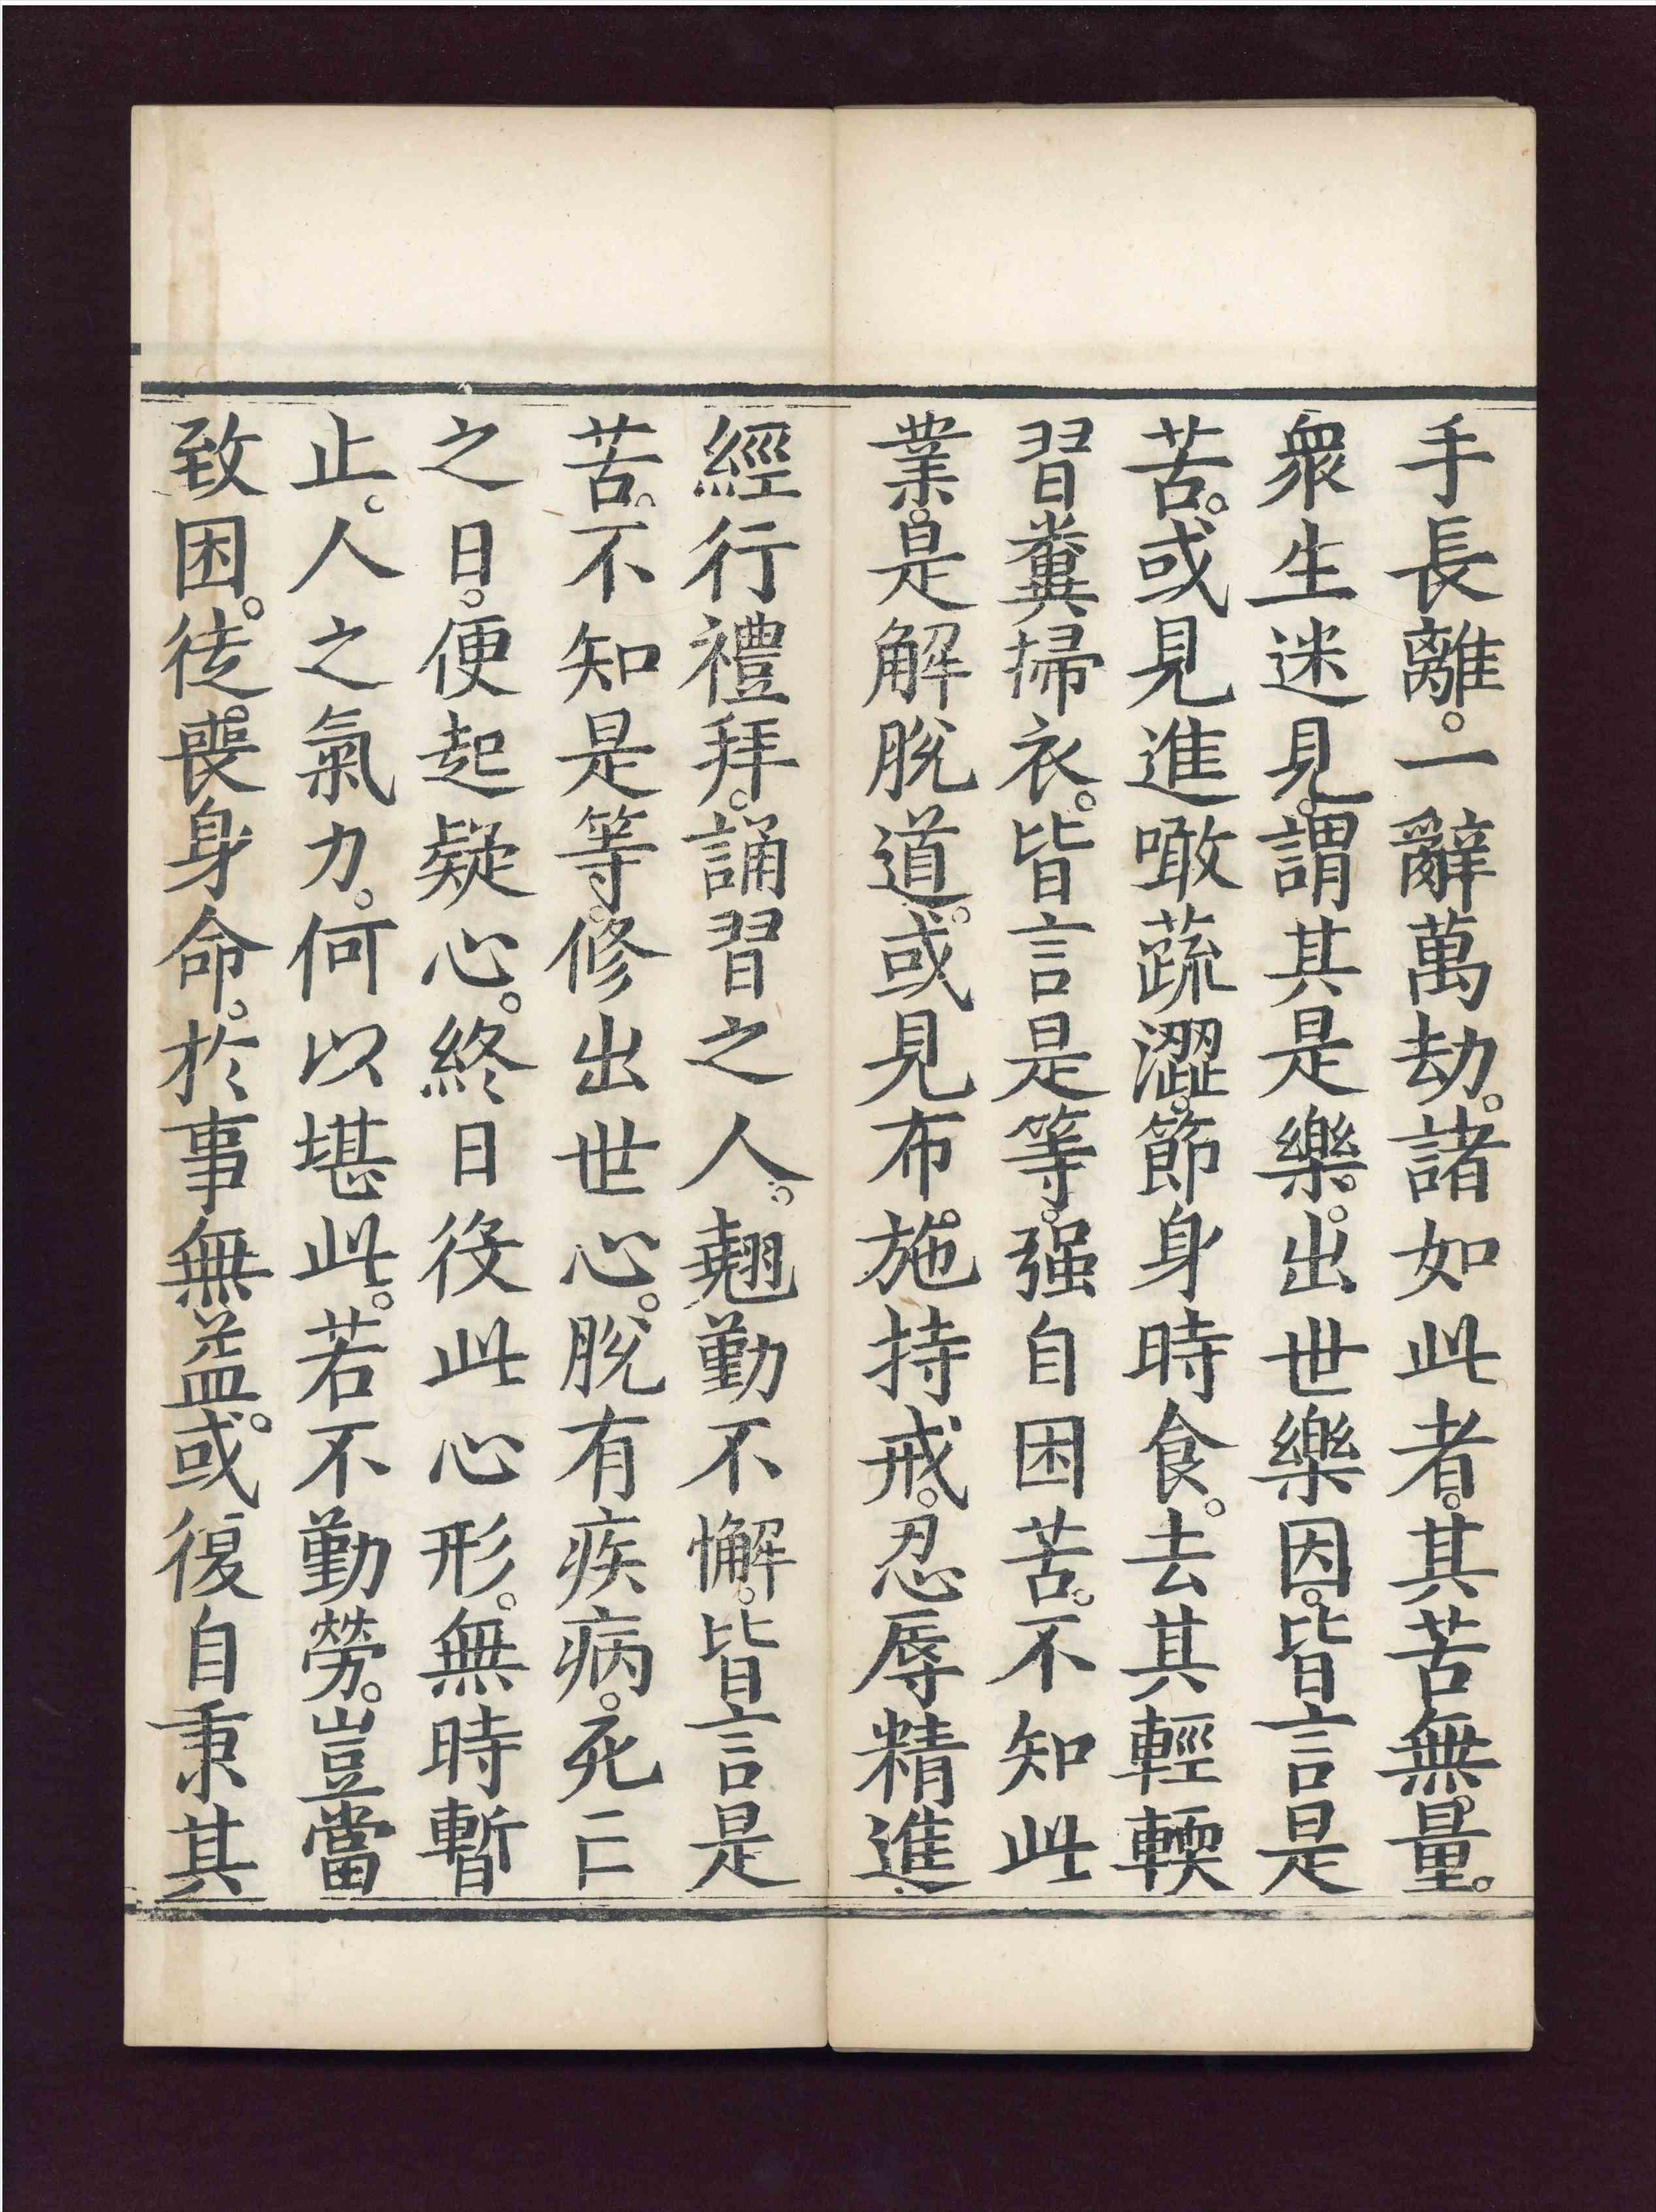 手長離。一辭萬劫。諸如此者。其苦無量。
衆生迷見。謂其是樂。出世樂因。皆言是
苦。或見進噉蔬澀。節身時食。去其輕輭
習糞掃衣。皆言是等。强自困苦。不知此
業。是解脫道。或見布施。持戒。忍辱精進
經行禮拜。誦習之人。翹勤不懈。皆言是
苦。不知是等。修出世心。脫有疾病。死亡
之日。便起疑心。終日役此心形。無時暫
止。人之氣力。何以堪此。若不勤勞。豈當
致困。徒喪身命。於事無益。或復自秉其